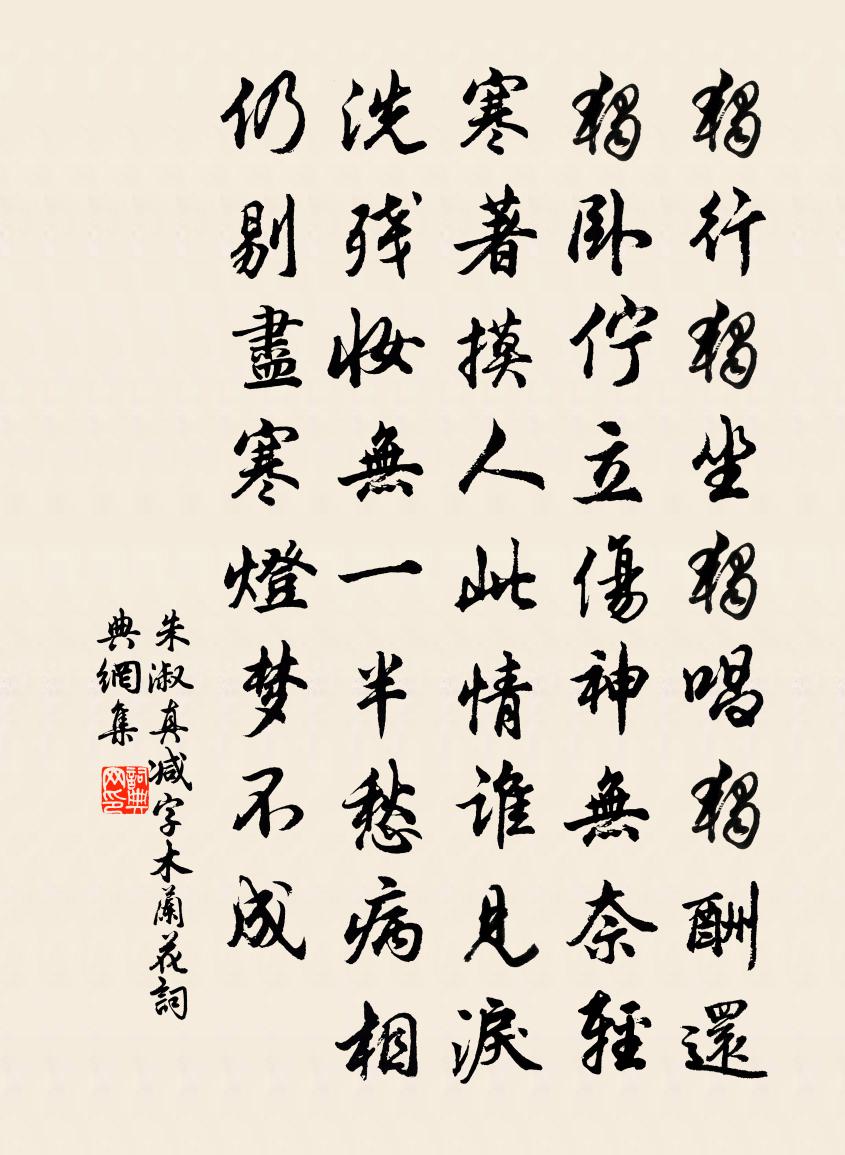 獨行獨坐獨唱獨酬還
獨卧佇立傷神無奈輕
寒著摸人此情誰見淚
洗残妝無一半愁病相
仍剔盡寒燈梦不成
朱淑真减字木蘭花詞
典網集
詞典网印